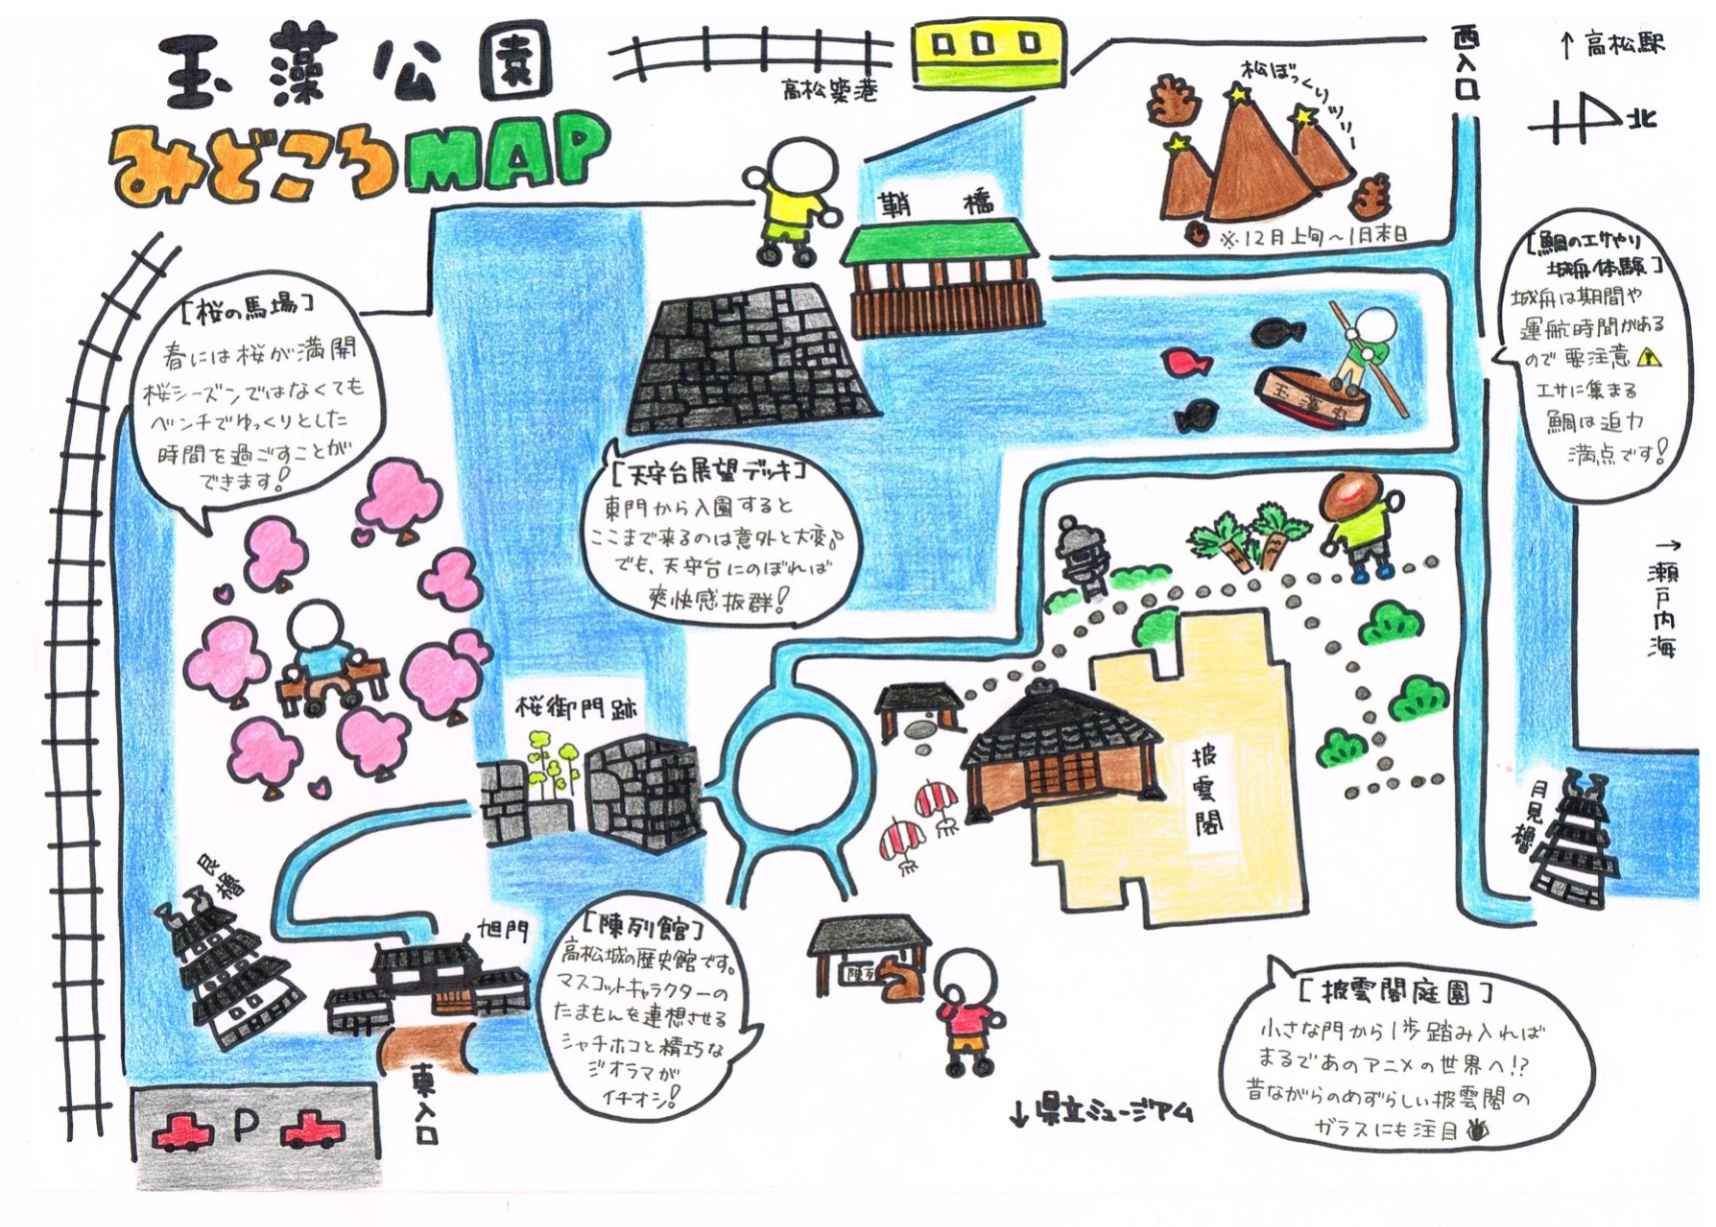 玉藻公園
みどころMAP
高松築港
西入口
↑高松駅
北
松ぼっくりツリー
※12月上旬~1月末日
鞘橋
[桜の馬場]
春には桜が満開
桜シーズンではなくても
ベンチでゆっくりとした
時間を過ごすことが
できます!
[鯛のエサやり
城舟体験]
城舟は期間や
運航時間がある
ので要注意
エサに集まる
鯛は迫力
満点です!
玉藻丸
[天守台展望デッキ]
東門から入園すると
ここまで来るのは意外と大変。
でも、天守台にのぼれば
爽快感抜群!
→瀬戸内海
桜御門跡
披雲閣
月見櫓
艮櫓
旭門
[陳列館]
高松城の歴史館です。
マスコットキャラクターの
たまもんを連想させる
シャチホコと精巧な
ジオラマが
イチオシ!
陳列
[披雲閣庭園]
小さな門から1歩踏み入れば
まるであのアニメの世界へ!?
昔ながらのめずらしい披雲閣の
ガラスにも注目
東入口
P
↓県立ミュージアム